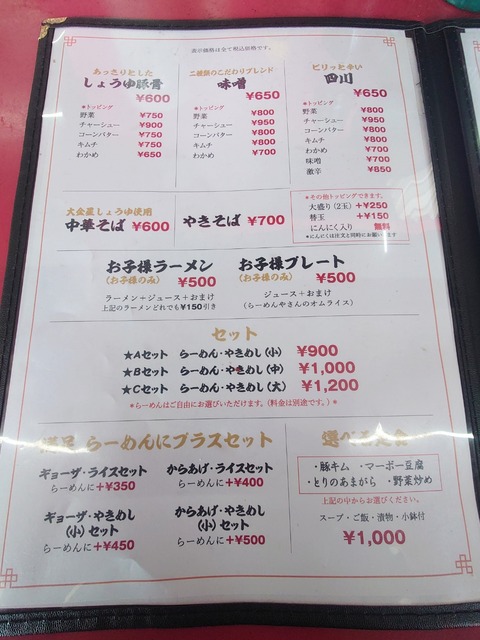 表示価格は全て税込価格です。
あっさりとした
しょうゆ豚骨
¥600
*トッピング
野菜 ¥750
チャーシュー ¥900
コーンバター ¥750
キムチ ¥750
わかめ ¥650
二種類のこだわりブレンド
味噌
¥650
*トッピング
野菜 ¥800
チャーシュー ¥950
コーンバター ¥800
キムチ ¥800
わかめ ¥700
ピリッと辛い
四川
¥650
*トッピング
野菜 ¥800
チャーシュー ¥950
コーンバター ¥800
キムチ ¥800
わかめ ¥700
味噌 ¥700
激辛 ¥850
大金産しょうゆ使用
中華そば ¥600
やきそば ¥700
*その他トッピングできます。
大盛り(2玉) +¥250
替玉 +¥150
にんにく入り 無料
*にんにくは注文と同時にお願いします
お子様ラーメン
(お子様のみ) ¥500
ラーメン+ジュース+おまけ
上記のラーメンどれでも¥150引き
お子様プレート
(お子様のみ) ¥500
ジュース+おまけ
(らーめんやさんのオムライス)
セット
★Aセット らーめん・やきめし(小) ¥900
★Bセット らーめん・やきめし(中) ¥1,000
★Cセット らーめん・やきめし(大) ¥1,200
*らーめんはご自由にお選びいただけます。(料金は別途です。)*
満足 らーめんにプラスセット
ギョーザ・ライスセット
らーめんに+¥350
からあげ・ライスセット
らーめんに+¥400
ギョーザ・やきめし
(小)セット
らーめんに+¥450
からあげ・やきめし
(小)セット
らーめんに+¥500
選べる定食
・豚キム ・マーボー豆腐
・とりのあまがら ・野菜炒め
上記の中からお選びください。
スープ・ご飯・漬物・小鉢付
¥1,000